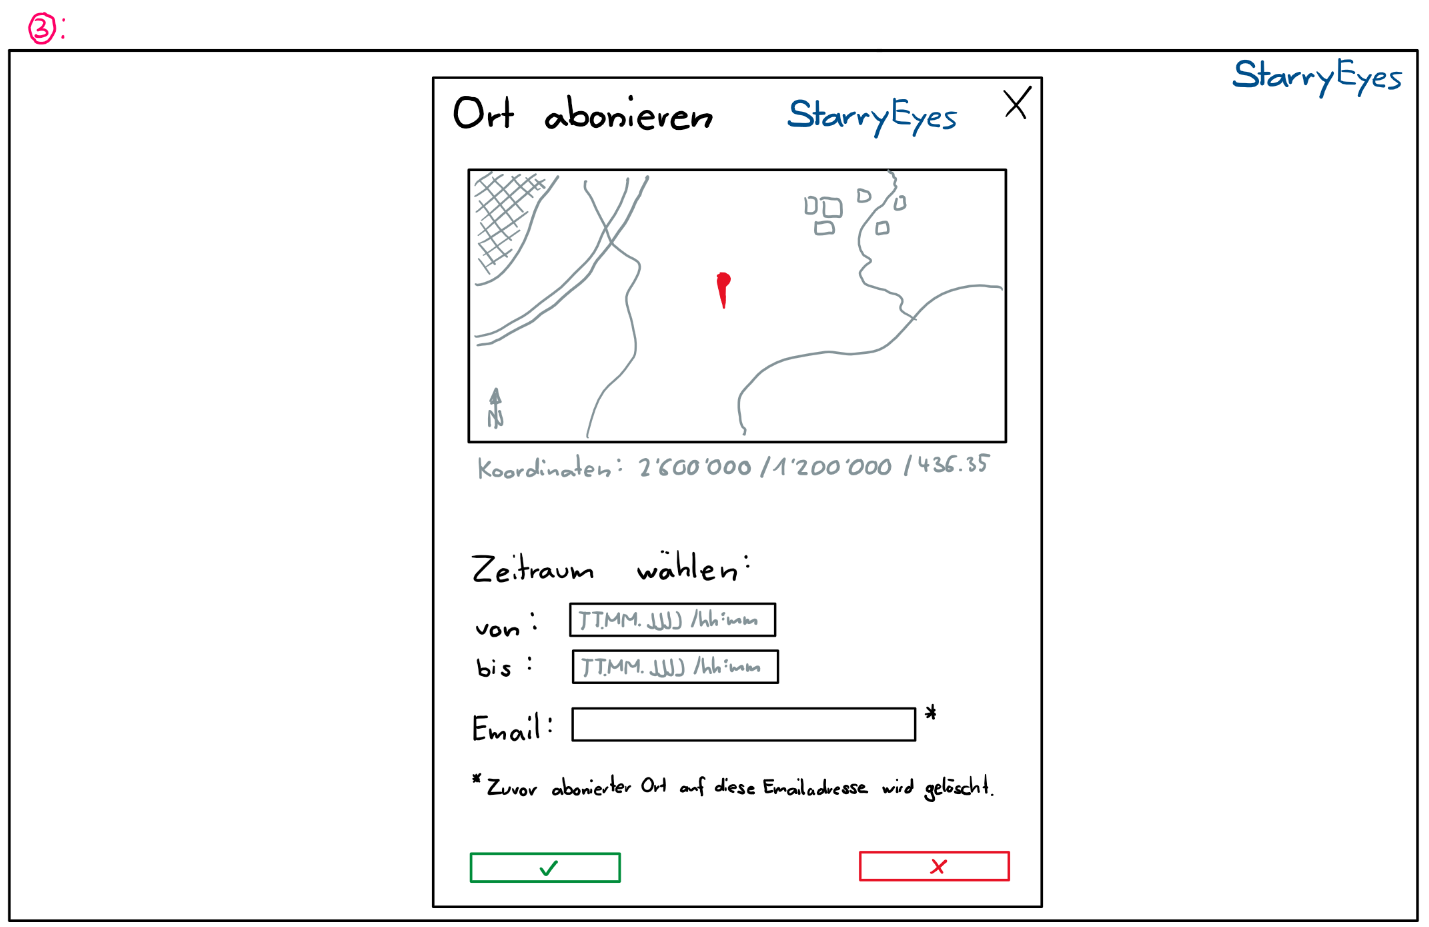 ③:
StarryEyes
Ort abonieren StarryEyes X
N
Koordinaten: 2'600'000 / 1'200'000 / 436.35
Zeitraum wählen:
von: TT.MM.JJJJ / hh:mm
bis: TT.MM.JJJJ / hh:mm
Email: *
* Zuvor abonierter Ort auf diese Emailadresse wird gelöscht.
✓ ✗